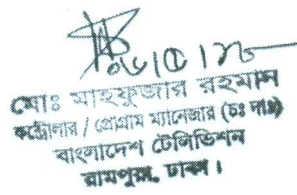 মোঃ মাহফুজার রহমান
কন্ট্রোলার / প্রোগ্রাম ম্যানেজার (চঃ দাঃ)
বাংলাদেশ টেলিভিশন
রামপুরা, ঢাকা।